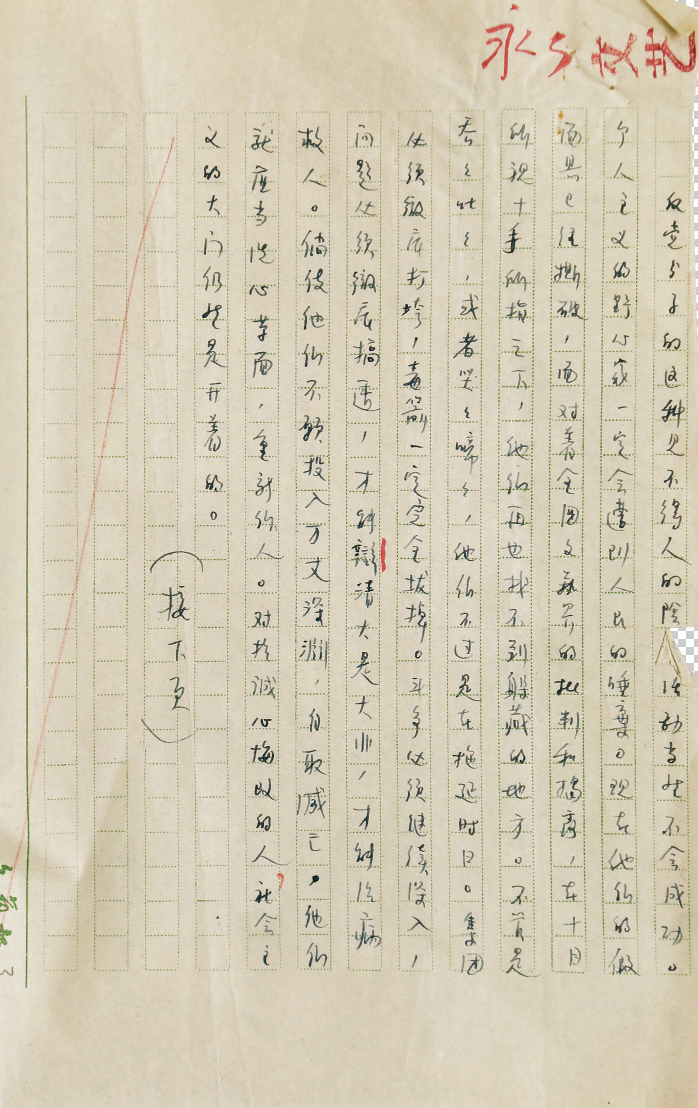 永久
反党分子的这种见不得人的阴 活动当然不会成功。
个人主义的野心家一定会遭到人民的唾弃。现在他们的假
面具已经撕破,面对着全国文艺界的批判和揭露,在十目
所视十手所指之下,他们再也找不到躲藏的地方。不管是
吞吞吐吐,或者哭哭啼啼,他们不过是在拖延时日。集团
必须彻底打垮,毒箭一定完全拔掉。斗争必须继续深入,
问题必须彻底搞透,才能辩清大是大非,才能治病
救人。倘使他们不愿投入万丈深渊,自取灭亡,他们
就应当洗心革面,重新作人。对于诚心悔改的人,社会主
义的大门仍然是开着的。
(接下页)